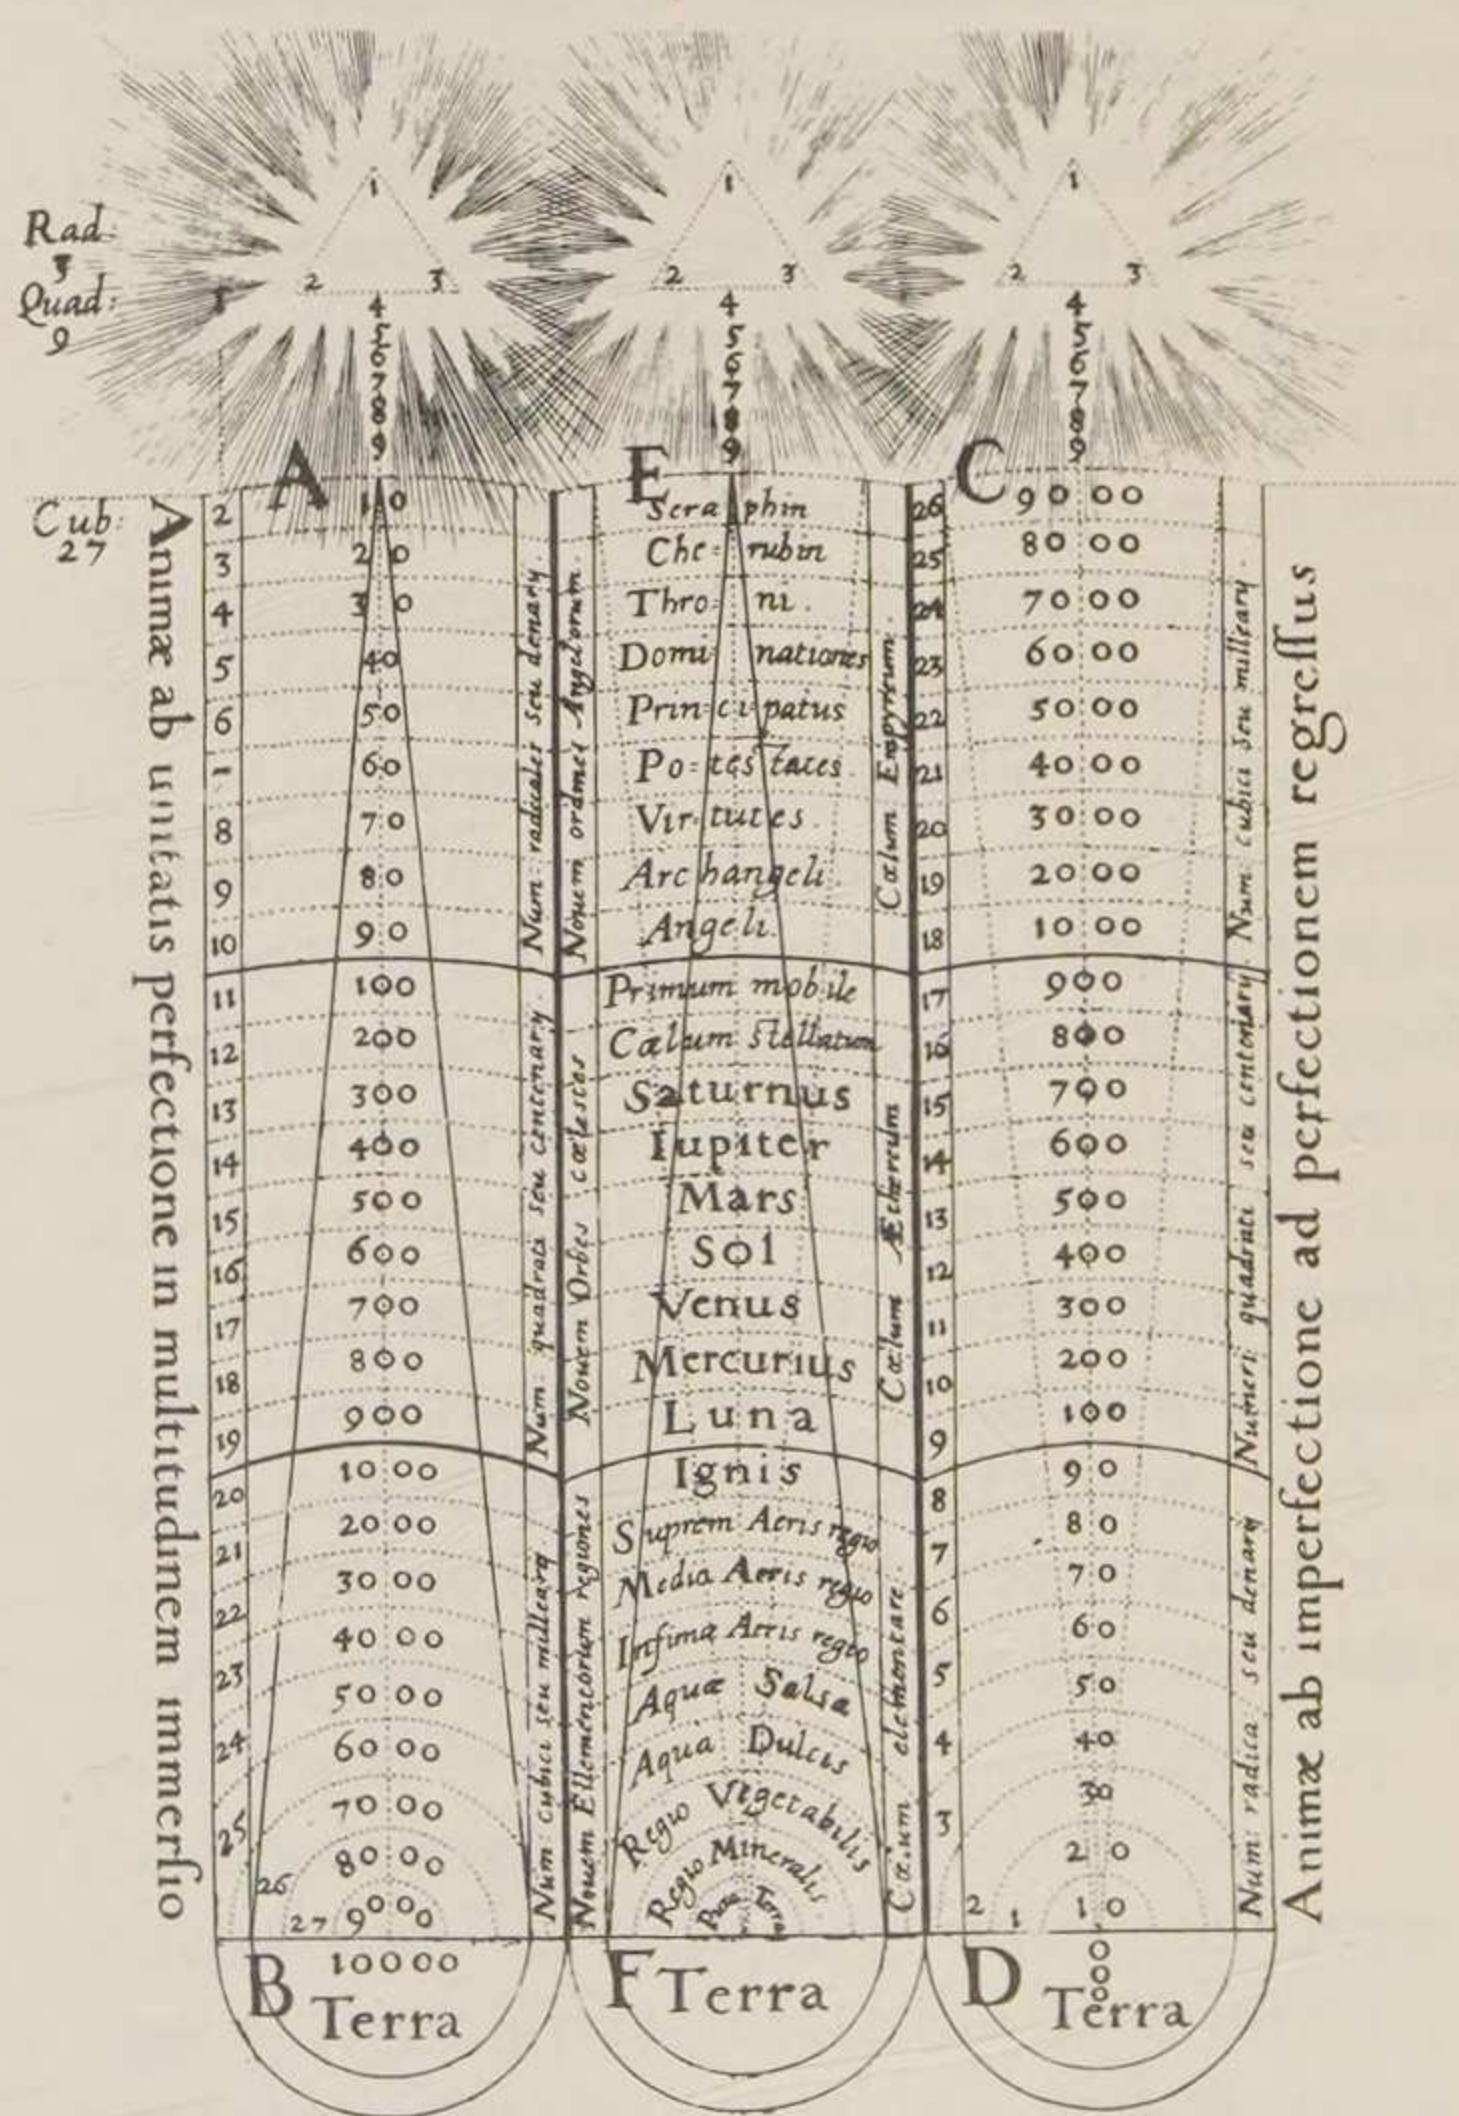 Rad:
3
Quad:
9
Cub:
27
Animæ ab unitatis perfectione in multitudinem immersio
1
2 3
4
5
6
7
8
9
A
2 10
3 20
4 30
5 40
6 50
60
8 70
9 80
10 90
11 100
12 200
13 300
14 400
15 500
16 600
17 700
18 800
19 900
20 1000
21 2000
22 3000
23 4000
24 5000
6000
25 7000
26 8000
27 9000
B 10000
Terra
Num: radicales seu denary.
Num: quadrati seu centenary.
Num cubici seu milleary
1
2 3
4
5
6
7
8
9
E
Nouem ordines Angelorum.
Nouem Orbes cœlestes
Nouem Ellementorum regiones
Seraphin
Che=rubin
Thro=ni.
Domi=nationes
Prin=cipatus
Po=testates.
Vir=tutes.
Archangeli.
Angeli.
Primum mobile
Cælum stellatum
Saturnus
Iupiter
Mars
Sol
Venus
Mercurius
Luna
Ignis
Suprem Aeris regio
Media Aeris regio
Infima Aeris regio
Aquæ Salsæ
Aqua Dulcis
Regio Vegetabilis
Regio Mineralis
Terra
F Terra
Cælum Empyreum.
Cælum Æthereum
Cælum elementare.
1
2 3
4
5
6
7
8
9
C
26 9000
25 8000
24 7000
23 6000
22 5000
21 4000
20 3000
19 2000
18 1000
17 900
16 800
15 700
14 600
13 500
12 400
11 300
10 200
9 100
8 90
7 80
6 70
60
5 50
4 40
3 30
2 20
1 10
D
0
0
0
Terra
Num: cubici seu milleary.
Numeri quadrati seu centenary.
Num: radica seu denary
Animæ ab imperfectione ad perfectionem regressus